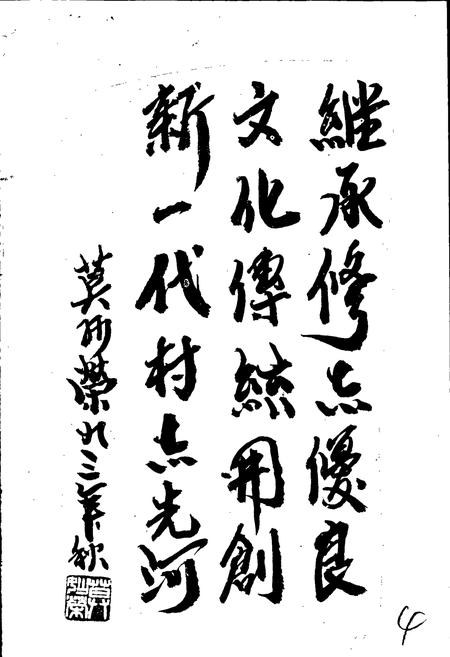 繼承修志優良
文化傳統開創
新一代村志先河
莫榮九三年秋
4